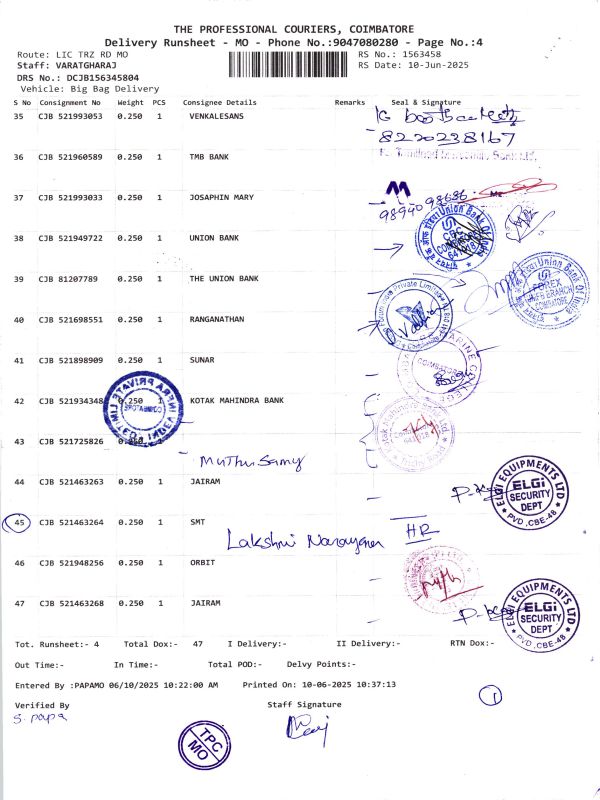 THE PROFESSIONAL COURIERS, COIMBATORE
Delivery Runsheet - MO - Phone No.:9047080280 - Page No.:4
Route: LIC TRZ RD MO RS No.: 1563458
Staff: VARATGHARAJ RS Date: 10-Jun-2025
DRS No.: DCJB156345804
Vehicle: Big Bag Delivery
S No Consignment No Weight PCS Consignee Details Remarks Seal & Signature
35 CJB 521993053 0.250 1 VENKALESANS
8220238167
36 CJB 521960589 0.250 1 TMB BANK
37 CJB 521993033 0.250 1 JOSAPHIN MARY
9894098686
38 CJB 521949722 0.250 1 UNION BANK
Union Bank Of India
39 CJB 81207789 0.250 1 THE UNION BANK
Union Bank Of India
FOREX
COIMBATORE
40 CJB 521698551 0.250 1 RANGANATHAN
Private Limited
41 CJB 521898909 0.250 1 SUNAR
42 CJB 521934348 0.250 1 KOTAK MAHINDRA BANK
INFRA PRIVATE LIMITED
43 CJB 521725826 0.250 1
Muthu Samy
44 CJB 521463263 0.250 1 JAIRAM
ELGI EQUIPMENTS LTD
ELGi
SECURITY
DEPT
PVD, CBE-48
45 CJB 521463264 0.250 1 SMT
Lakshmi Narayanan HR
46 CJB 521948256 0.250 1 ORBIT
47 CJB 521463268 0.250 1 JAIRAM
ELGI EQUIPMENTS LTD
ELGi
SECURITY
DEPT
PVD, CBE-48
Tot. Runsheet:- 4 Total Dox:- 47 I Delivery:- II Delivery:- RTN Dox:-
Out Time:- In Time:- Total POD:- Delvy Points:-
Entered By :PAPAMO 06/10/2025 10:22:00 AM Printed On: 10-06-2025 10:37:13
1
Verified By Staff Signature
S. papa
TPC
MO